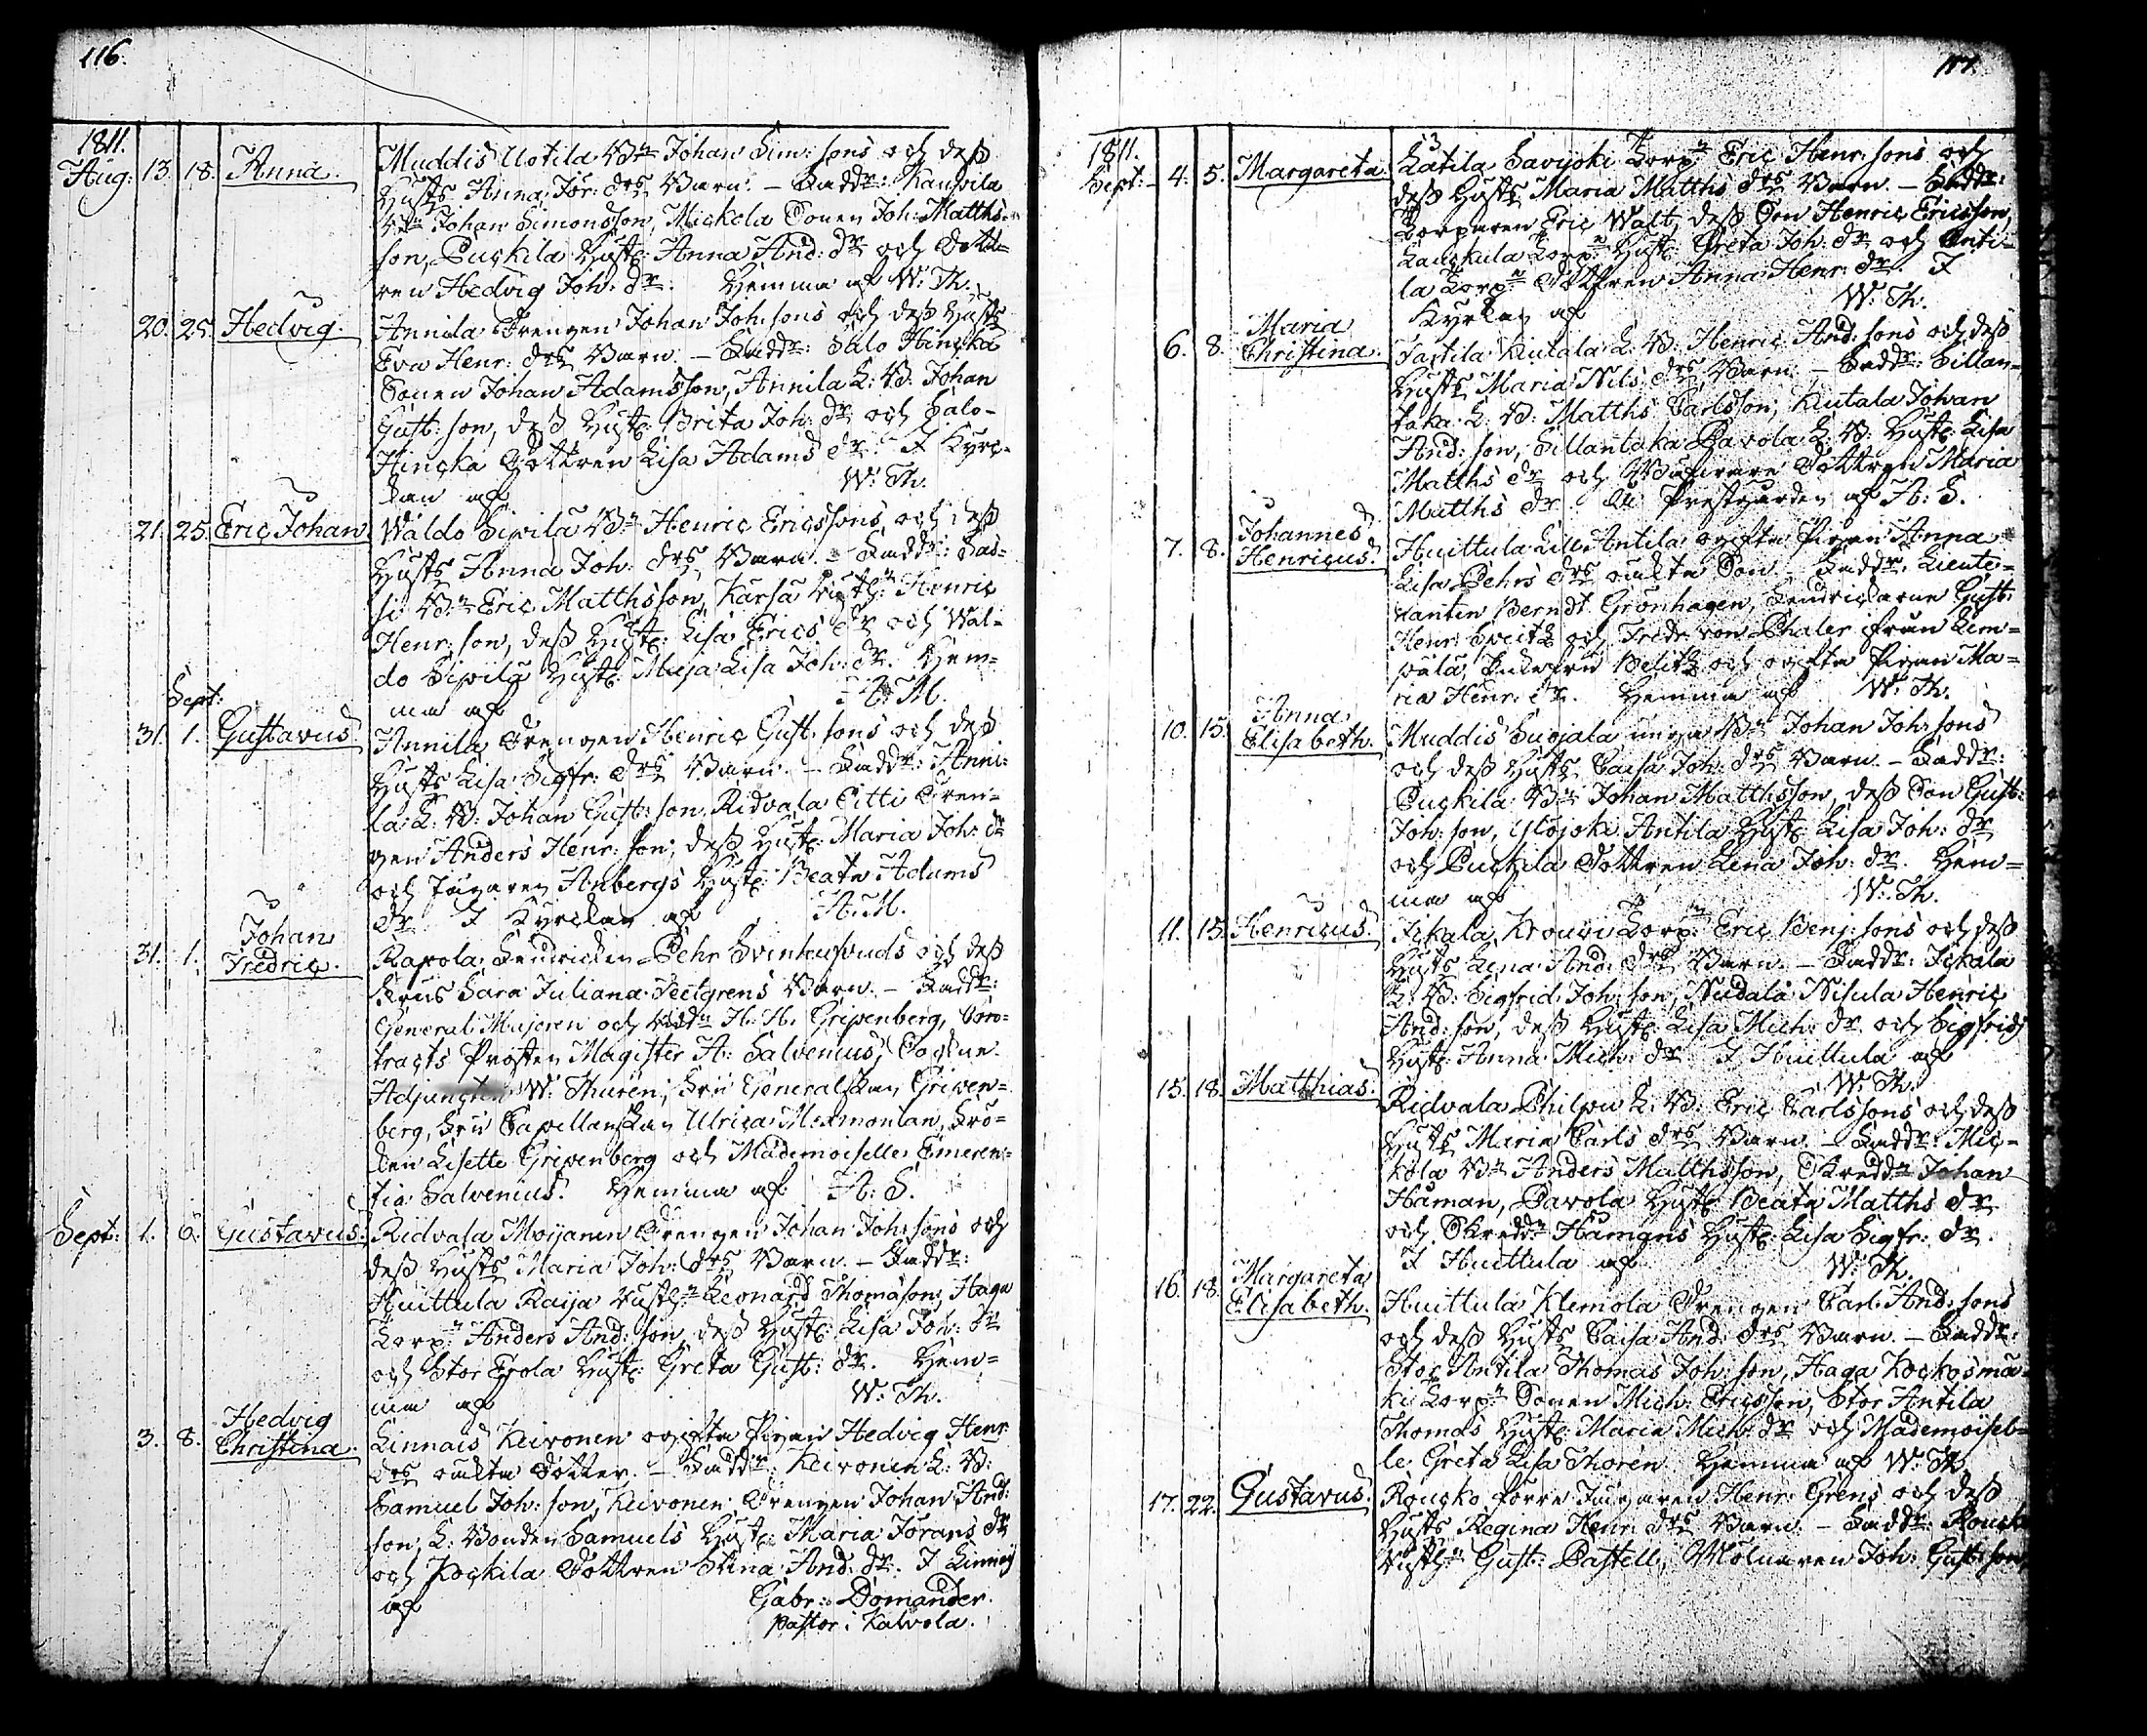 116.
1811.
Aug: 13. 18. Anna. Muddis Uotila Bn Johan Sim: sons och dess
Hust: Anna Jör: drs Barn. – Fadd: Kauvila
Bn Johan Simonsson, Mickola Sonen Joh: Matths
son, Puckila Hust: Anna And: dr och Dott-
ren Hedvig Joh: dr. Hemma af W: Th.
20. 25. Hedvig. Annila Drengen Johan Joh: sons och dess Hust:
Eva Henr: drs Barn. – Fadd: Salo Hincka
Sonen Johan Adamsson, Annila L: B: Johan
Gust: son, dess Hust: Brita Joh: dr och Salo-
Hincka Dottren Lisa Adams dr. I Kyrc-
kan af W: Th.
21. 25. Eric Johan. Waldo Sipilä Bn Henric Ericssons och dess
Hust: Anna Joh: drs Barn. – Fadd: Sas-
si Bn Eric Matthsson, Karsa Henric
Henr: son, dess Hust: Lisa Erics dr och Wal-
do Sipilä Hust: Maja Lisa Joh: dr. Hem-
ma af A: M.
Sept:
31. 1. Gustavus. Annila Drengen Henric Gust: sons och dess
Hust: Lisa Sigfr: drs Barn. – Fadd: Anni-
la L: B: Johan Gust: son, Ridvala Eitti Dren-
gen Anders Henr: son, dess Hust: Maria Joh: dr
och Jägaren Anbergs Hust: Beata Adams
dr. I Kyrckan af A: M.
Johan
31. 1. Fredric. Rapola Fendricken Pehr Svinhufvuds och dess
Frus Sara Juliana Teetgrens Barn. – Fadd:
General Majoren och Ridd: H: H: Gripenberg, Con-
tracts Prosten Magister A: Salvenius, Sockne
Adjuncten W: Thuren, Fru Generalskan Gripen-
berg, Fru Capellanskan Ulrica Mexmontan, Frö-
ken Lisette Gripenberg och Mademoiselle Emeren-
tia Salvenius. Hemma af A: S.
Sept: 1. 6. Gustavus. Ridvala Moijanen Drengen Johan Joh: sons och
dess Hust: Maria Joh: drs Barn. – Fadd:
Huittula Raija Leonard Thomason, Haga
Torp: Anders And: son, dess Hust: Lisa Joh: dr
och Stor Erola Hust: Greta Gust: dr. Hem-
ma af W: Th.
Hedvig
3. 8. Christina. Linnais Keironen ogifta Pigan Hedvig Henr:
drs oäkta Dotter. – Fadd: Keironen L: B:
Samuel Joh: son, Keivonen Drengen Johan And:
son, L: Bonden Samuels Hust: Maria Jörans dr
och Kockila Dottren Stina And: dr. I Linnais
af Gabr: Domander.
pastor i Kalvola.
117.
1811.
Sept: 4. 5. Margareta. Laitila Savijoki Torp: Eric Henr: sons och
dess Hust: Maria Matths drs Barn. – Fadd:
Torparen Eric Walt, dess Son Henric Ericsson,
Lauckula Torp: Hust: Greta Joh: dr och Anti-
la Torp: Dottren Anna Henr: dr. I
Kyrkan af W: Th.
Maria
6. 8. Christina. Tarttila Kiutala L: B: Henric And: sons och dess
Hust: Maria Nils drs Barn. – Fadd: Sillan-
taka L: B: Matths Carlsson, Kiutala Johan
And: son, Sillantaka Pavola L: B: Hust: Lisa
Matths dr och Dottren Maria
Matths dr. Prestgården af A: S.
Johannes
7. 8. Henricus. Huittula Lill Antila ogifta Pigan Anna
Lisa Pehrs drs oäkta Son. – Fadd: Lieute-
nanten Berndt Grönhagen, Fendrickarne Gust:
Henr: Speitz och Fredr: von Phaler från Lem-
pälä, Enkefru Belitz och ogifta Pigan Ma-
ria Henr: dr. Hemma af W: Th.
Anna
10. 15. Elisabeth. Muddis Suojala unga Bn Johan Joh: sons
och dess Hust: Caisa Joh: drs Barn. – Fadd:
Puckila Bn Johan Matthsson, dess Son Gust:
Joh: son, Ylöjoki Antila Hust: Lisa Joh: dr
och Puckila Dottren Lena Joh: dr. Hem-
ma af W: Th.
11. 15. Henricus. Jckala Krouvi Torp: Eric Benj: sons och dess
Hust: Lena And: drs Barn. – Fadd: Jckala
L: B: Sigfrid Joh: son, Nudala Nisula Henric
And: son, dess Hust: Lisa Mich: dr och Sigfrids
Hust: Anna Mich: dr. I Huittula af
W: Th.
15. 18. Matthias. Ridvala Philpu L: B: Eric Carlssons och dess
Hust: Maria Carls drs Barn. – Fadd: Mic-
kola Bn Anders Matthsson, Skredd: Johan
Håman, Pavola Hust: Beata Matths dr
och Skredd: Håmans Hust: Lisa Sigfr: dr.
I Huittula af W: Th.
Margareta
16. 18. Elisabeth. Huittula Klemola Drengen Carl And: sons
och dess Hust: Caisa And: drs Barn. – Fadd:
Stor Antila Thomas Joh: son, Haga Kockosmä-
ki Torp: Sonen Mich: Ericsson, Stor Antila
Thomas Hust: Maria Mich: dr och Mademoisel-
le Greta Lisa Thoren. Hemma af W: Th.
17. 22. Gustavus. Roucko förre Jägaren Henr: Grens och dess
Hust: Regina Henr: drs Barn. – Fadd: Roucko
Gust: Pastell, Mölnaren Joh: Gust: son,